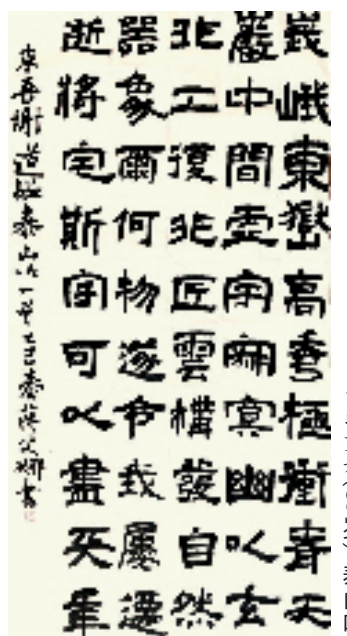 峩峨東嶽高秀極衝青天
巖中間虛宇寂寞幽以玄
非工復非匠雲構發自然
器象爾何物遂令我屢遷
逝將宅斯宇可以盡天年
東晉謝道韞泰山吟一首乙巳春蔣娜書